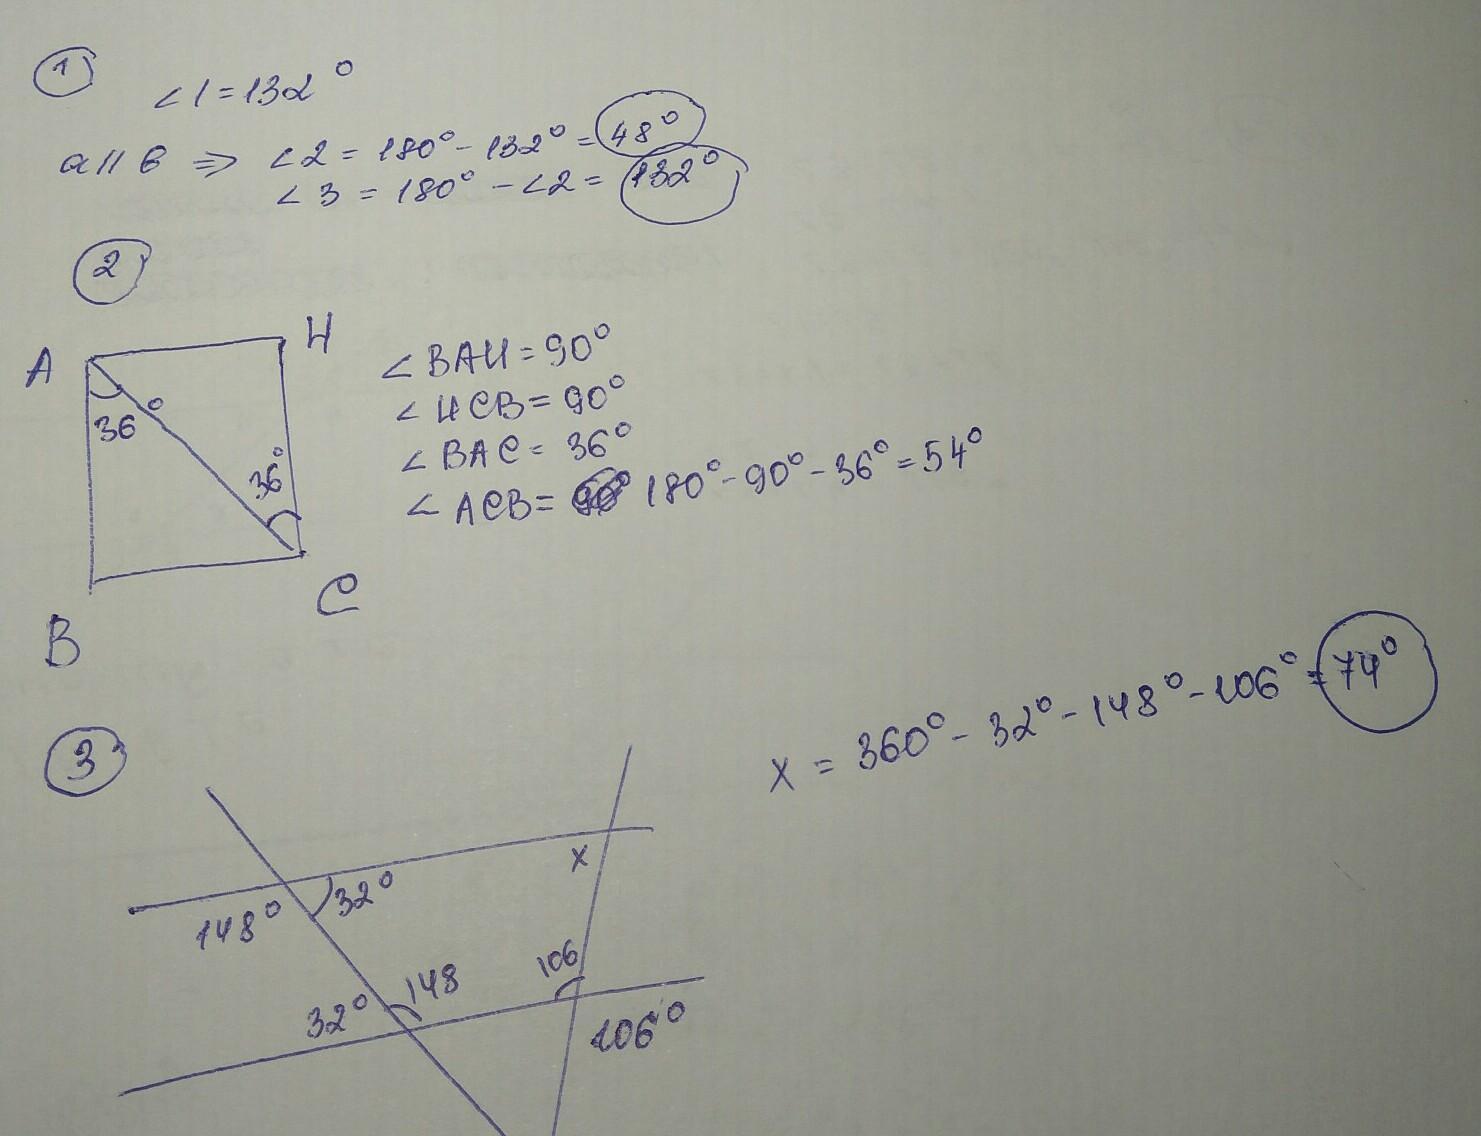 1
∠1=132°
a∥b ⇒ ∠2 = 180° - 132° = 48°
∠3 = 180° - ∠2 = 132°
2
A
H
36°
36°
B
C
∠BAH = 90°
∠HCB = 90°
∠BAC = 36°
∠ACB = 180° - 90° - 36° = 54°
3
x = 360° - 32° - 148° - 106° = 74°
x
148°
32°
32°
148
106
106°